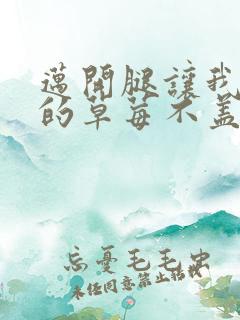 邁開腿讓我
的草莓不蓋
忘憂毛毛虫
未任同意禁止转载